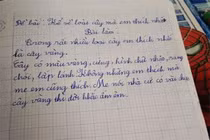 Đề bài: Kể về loài cây mà em thích nhất
Bài làm
Trong rất nhiều loài cây em thích nhất
là cây vàng.
Cây có màu vàng ưng, hình chữ nhật, sáng
chói, lấp lánh. Không những em thích mà
mẹ em cũng thích. Mẹ nói nhà cứ có vài cây
cây vàng thì đời khắc ấm êm.